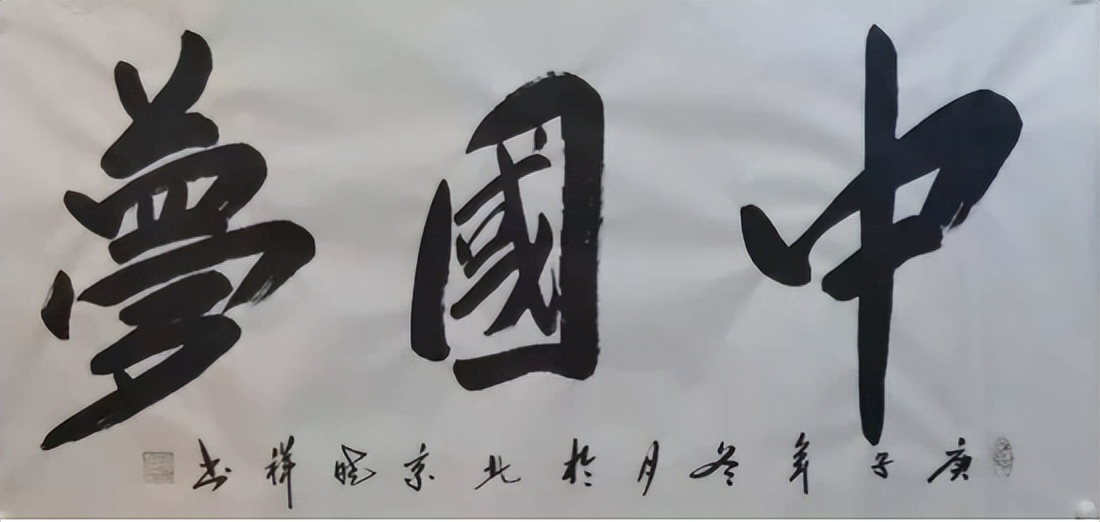 中國夢
庚子年冬月於北京曉祥书